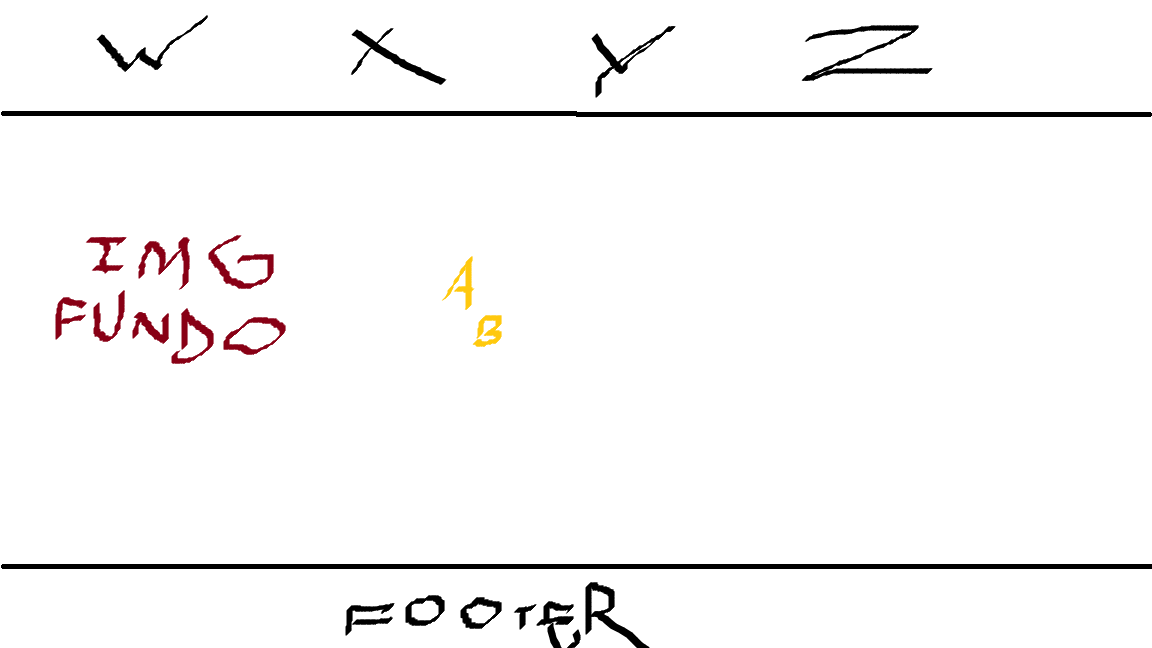 W X Y Z
IMG
FUNDO
A
B
FOOTER